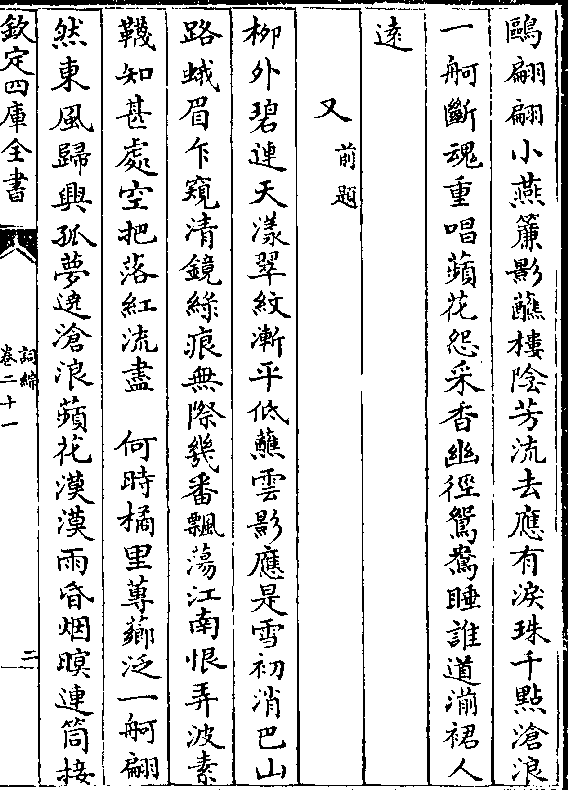 鷗翩翩小燕簾影蘸樓陰芳流去應有淚珠千點滄浪
一舸斷魂重唱蘋花怨采香幽徑鴛鴦睡誰道湔裙人
遠
又前題
柳外碧連天漾翠紋漸平低蘸雲影應是雪初消巴山
路蛾眉乍窺清鏡綠痕無際幾番飄蕩江南恨弄波素
韈知甚處空把落紅流盡　何時橘里蓴鄉泛一舸翩
然東風歸興孤夢遶滄浪蘋花漠漠雨昏烟暝連筒接
欽定四庫全書
詞綜
卷二十一
二